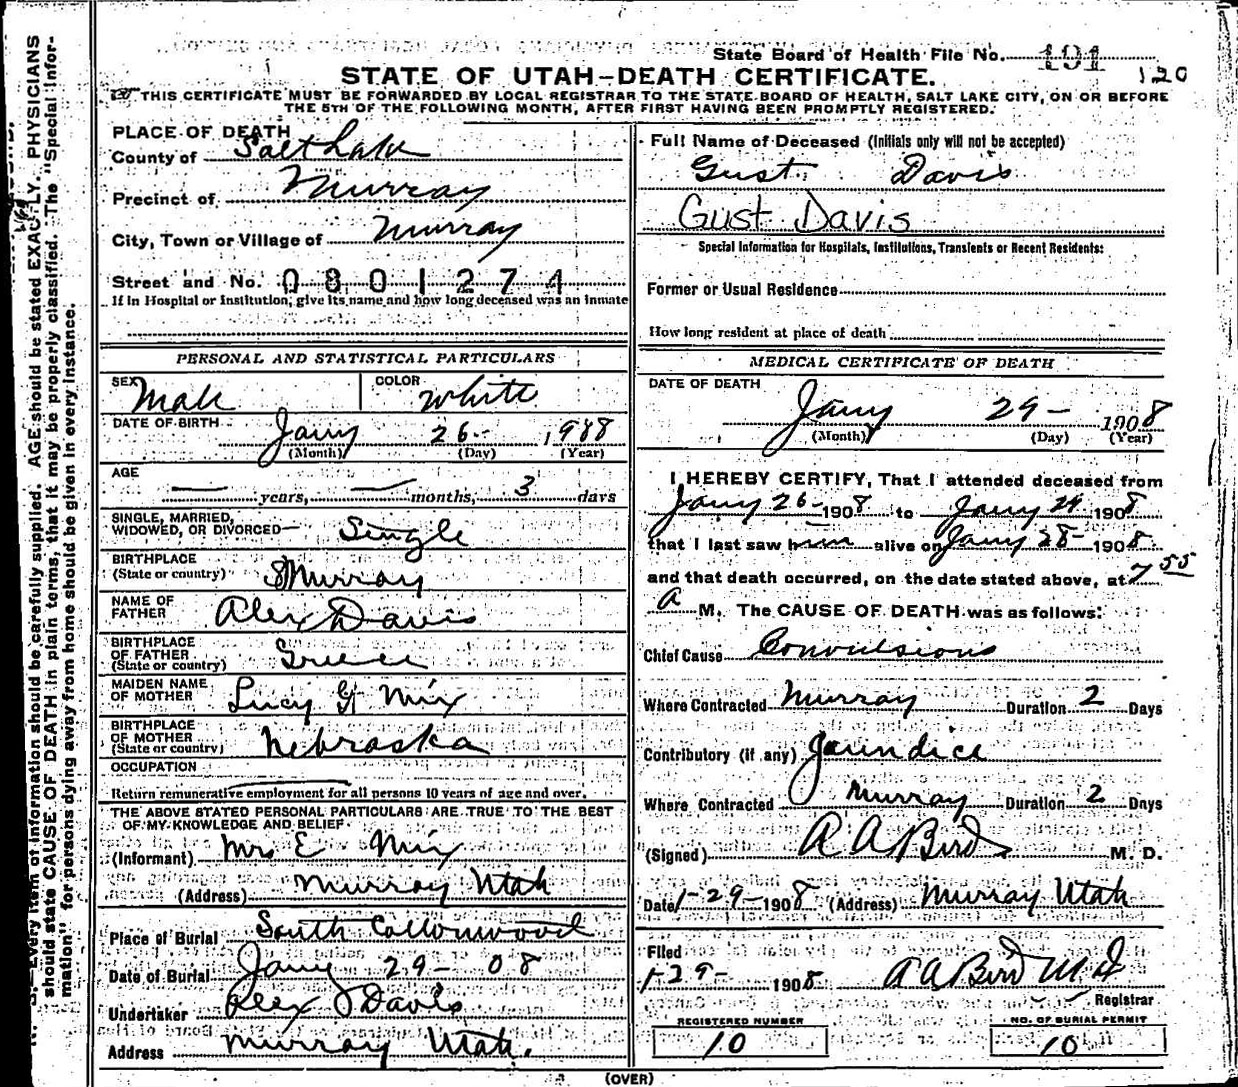 State Board of Health File No. 191
120
STATE OF UTAH—DEATH CERTIFICATE.
THIS CERTIFICATE MUST BE FORWARDED BY LOCAL REGISTRAR TO THE STATE BOARD OF HEALTH, SALT LAKE CITY, ON OR BEFORE
THE 5TH OF THE FOLLOWING MONTH, AFTER FIRST HAVING BEEN PROMPTLY REGISTERED.
PLACE OF DEATH
County of Salt Lake
Precinct of Murray
City, Town or Village of Murray
Street and No. 0801274
If in Hospital or Institution, give its name and how long deceased was an inmate
PERSONAL AND STATISTICAL PARTICULARS
SEX Male COLOR White
DATE OF BIRTH Jany 26 - 1908
(Month) (Day) (Year)
AGE
— years, — months, 3 days
SINGLE, MARRIED,
WIDOWED, OR DIVORCED Single
BIRTHPLACE
(State or country) Murray
NAME OF
FATHER Alex Davis
BIRTHPLACE
OF FATHER
(State or country) Greece
MAIDEN NAME
OF MOTHER Lucy G Mix
BIRTHPLACE
OF MOTHER
(State or country) Nebraska
OCCUPATION
Return remunerative employment for all persons 10 years of age and over.
THE ABOVE STATED PERSONAL PARTICULARS ARE TRUE TO THE BEST
OF MY KNOWLEDGE AND BELIEF
(Informant) Mrs E Mix
(Address) Murray Utah
Place of Burial South Cottonwood
Date of Burial Jany 29 - 08
Undertaker Alex Davis
Address Murray Utah.
Full Name of Deceased (Initials only will not be accepted)
Gust Davis
Gust Davis
Special Information for Hospitals, Institutions, Transients or Recent Residents:
Former or Usual Residence
How long resident at place of death
MEDICAL CERTIFICATE OF DEATH
DATE OF DEATH
Jany 29 - 1908
(Month) (Day) (Year)
I HEREBY CERTIFY, That I attended deceased from
Jany 26 - 1908 to Jany 29 1908
that I last saw him alive on Jany 28 - 1908
and that death occurred, on the date stated above, at 7 55
A M. The CAUSE OF DEATH was as follows:
Chief Cause Convulsions
Where Contracted Murray Duration 2 Days
Contributory (if any) Jaundice
Where Contracted Murray Duration 2 Days
(Signed) A A Bird M. D.
Date 1-29-1908 (Address) Murray Utah
Filed
1-29- 1908 A A Bird M D
Registrar
REGISTERED NUMBER
10
NO. OF BURIAL PERMIT
10
(OVER)
Every item of information should be carefully supplied. AGE should be stated EXACTLY. PHYSICIANS
should state CAUSE OF DEATH in plain terms, that it may be properly classified. The "Special Infor-
mation" for persons dying away from home should be given in every instance.